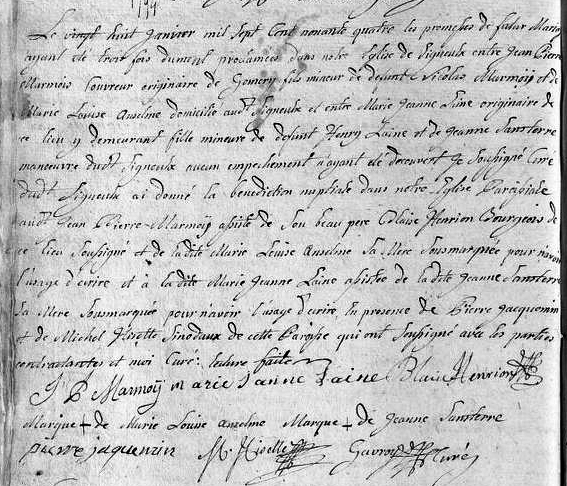 1794
Le vingt huit janvier mil sept cent nonante quatre les promesses de futur Mariage
ayant été trois fois dument proclamées dans notre Eglise de Signeulx entre Jean Pierre
Marmoij Couvreur originaire de Gomery fils mineur de defunt Nicolas Marmoij et de
Marie Louise Anselme domicilié audt Signeulx et entre Marie Jeanne Laine originaire de
ce lieu y demeurant fille mineure de defunt Henry Laine et de Jeanne Sansterre
manoeuvre dudt Signeulx aucun empechement n'ayant été decouvert Je Soussigné Curé
dudt Signeulx ai donné la benediction nuptiale dans notre Eglise Paroissiale
audt Jean Pierre Marmoij assisté de son beau pere Blaise Henrion Bourgeois de
ce lieu soussigné et de ladite Marie Louise Anselme sa Mere sousmarquée pour navoir
l'usage d'ecrire et à ladite Marie Jeanne Laine assistée de ladite Jeanne Sansterre
sa Mere sousmarquée pour navoir l'usage d'ecrire En presence de Pierre Jacquemin
et de Michel Hisette Sinodaux de cette Paroisse qui ont soussigné avec les parties
contractantes et moi Curé: lecture faite
J P Marmoÿ marie Janne Laine Blaise Henrion
Marque + de Marie Louise anselme Marque + de Jeanne Sansterre
pierre jaquemin M. Hisette Curé